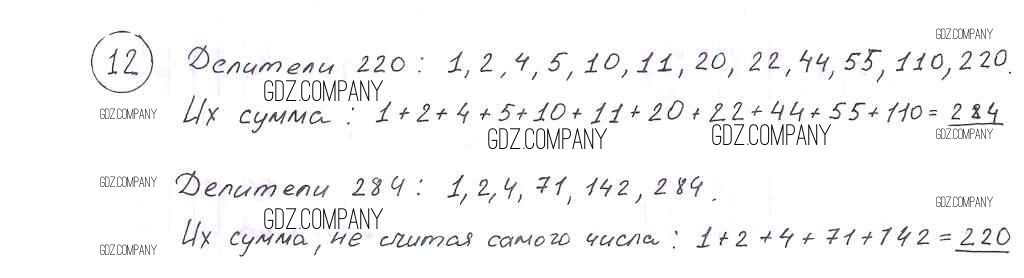 GDZ.COMPANY
12 Делители 220 : 1, 2, 4, 5, 10, 11, 20, 22, 44, 55, 110, 220.
GDZ.COMPANY
GDZ.COMPANY Их сумма : 1+2+4+5+10+11+20+22+44+55+110=284
GDZ.COMPANY GDZ.COMPANY GDZ.COMPANY
GDZ.COMPANY Делители 284 : 1, 2, 4, 71, 142, 284.
GDZ.COMPANY
GDZ.COMPANY
GDZ.COMPANY Их сумма, не считая самого числа : 1+2+4+71+142=220